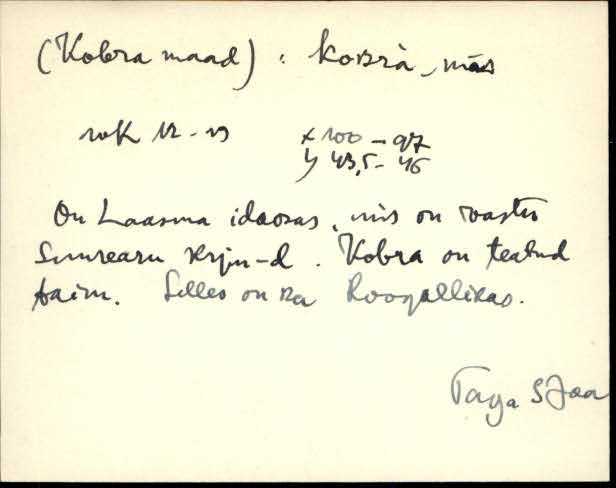 (Kobra maad) : kobra, mās
rvk 12-13 x 100 - 97
y 43,5 - 46
On Laasma idaosas, mis on vastu
Suurearu krjm-d. Kobra on teatud
taim. Selles on ka Roogallikas.
Taga S Jaa